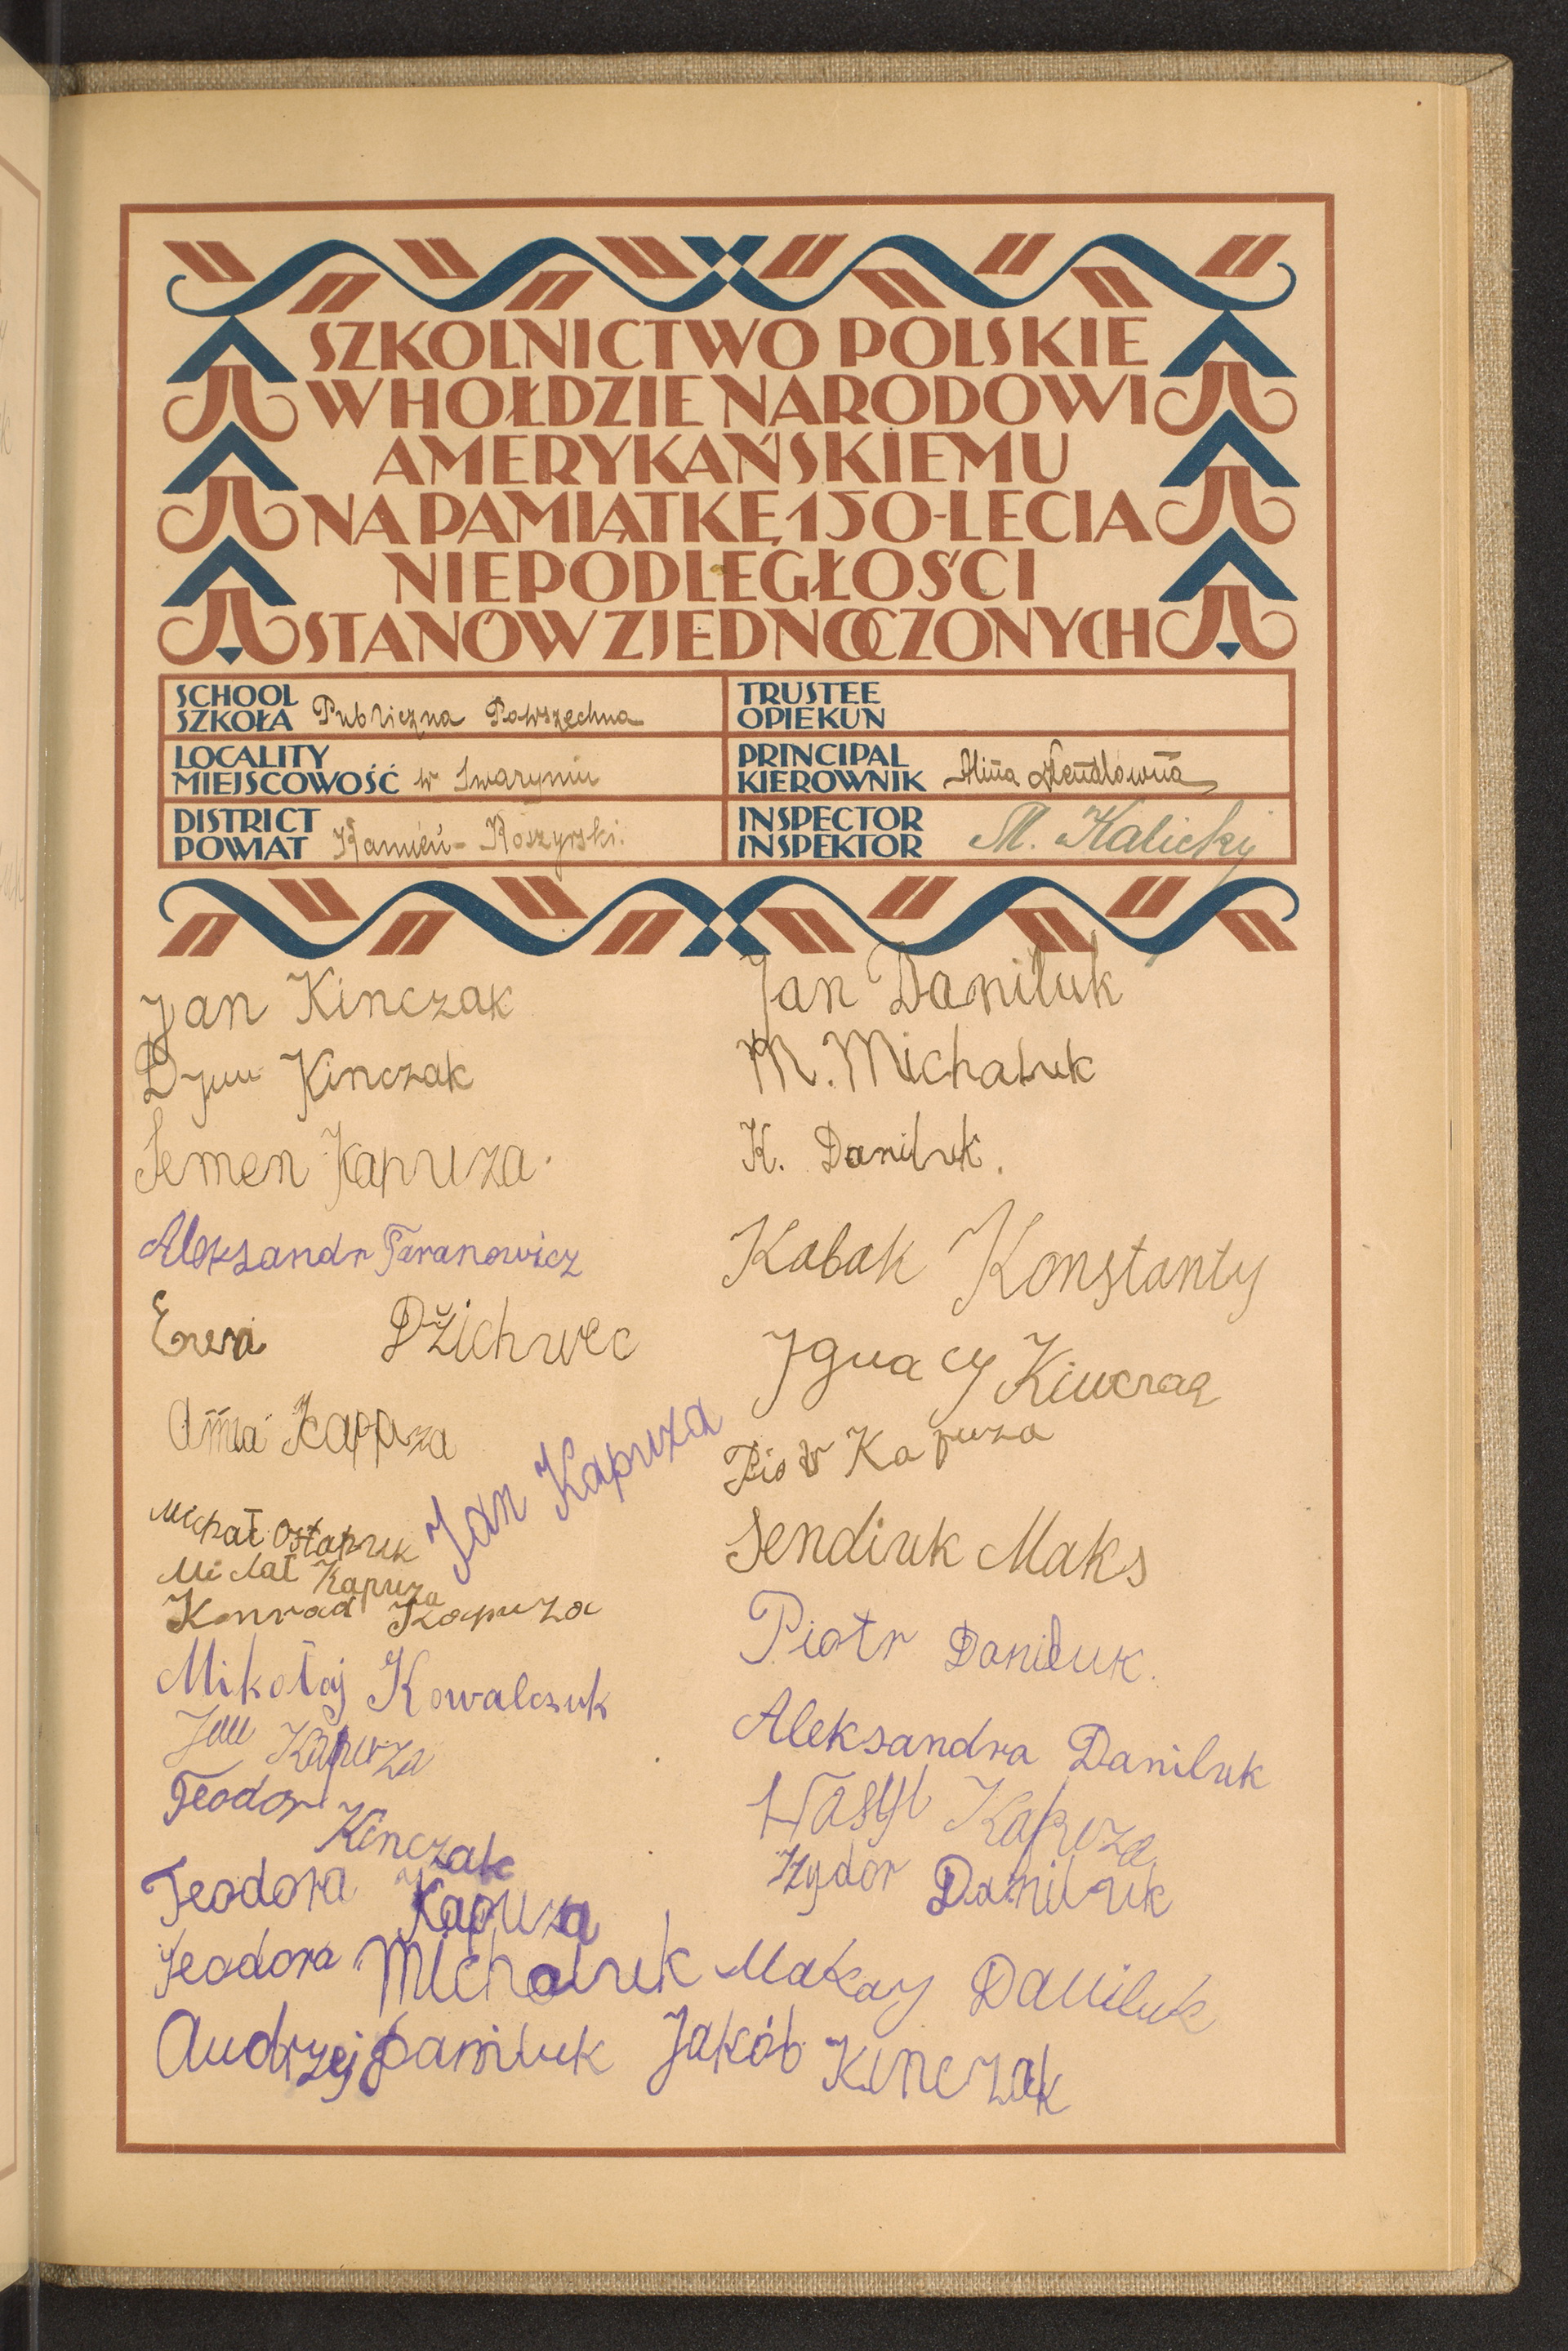 SZKOLNICTWO POLSKIE
W HOŁDZIE NARODOWI
AMERYKAŃSKIEMU
NA PAMIĄTKĘ 150-LECIA
NIEPODLEGŁOŚCI
STANÓW ZJEDNOCZONYCH
SCHOOL
SZKOŁA Publiczna Powszechna
LOCALITY
MIEJSCOWOŚĆ w
DISTRICT
POWIAT Kamień-Koszyrski.
TRUSTEE
OPIEKUN
PRINCIPAL
KIEROWNIK Alina
INSPECTOR
INSPEKTOR M. Kalicky
Jan Kinczak
Kinczak
Semen Kapuza.
Aleksandr Taranowicz
Ewa Dżichwec
Anna Kapuza
Jan Kapuza
Michał Ostapuk
Michał Kapuza
Konrad Kapuza
Mikołaj Kowalczuk
Jan Kapuza
Teodor Kinczak
Teodora Kapuza
Teodora Michaluk
Andrzej Daniluk
Jan Daniluk
M. Michaluk
K. Daniluk.
Kabak Konstanty
Ignacy
Piotr Kapuza
Sendiuk Maks
Piotr Daniluk.
Aleksandra Daniluk
Wasyl Kapuza
Izydor Daniluk
Makary Daniluk
Jakób Kinczak